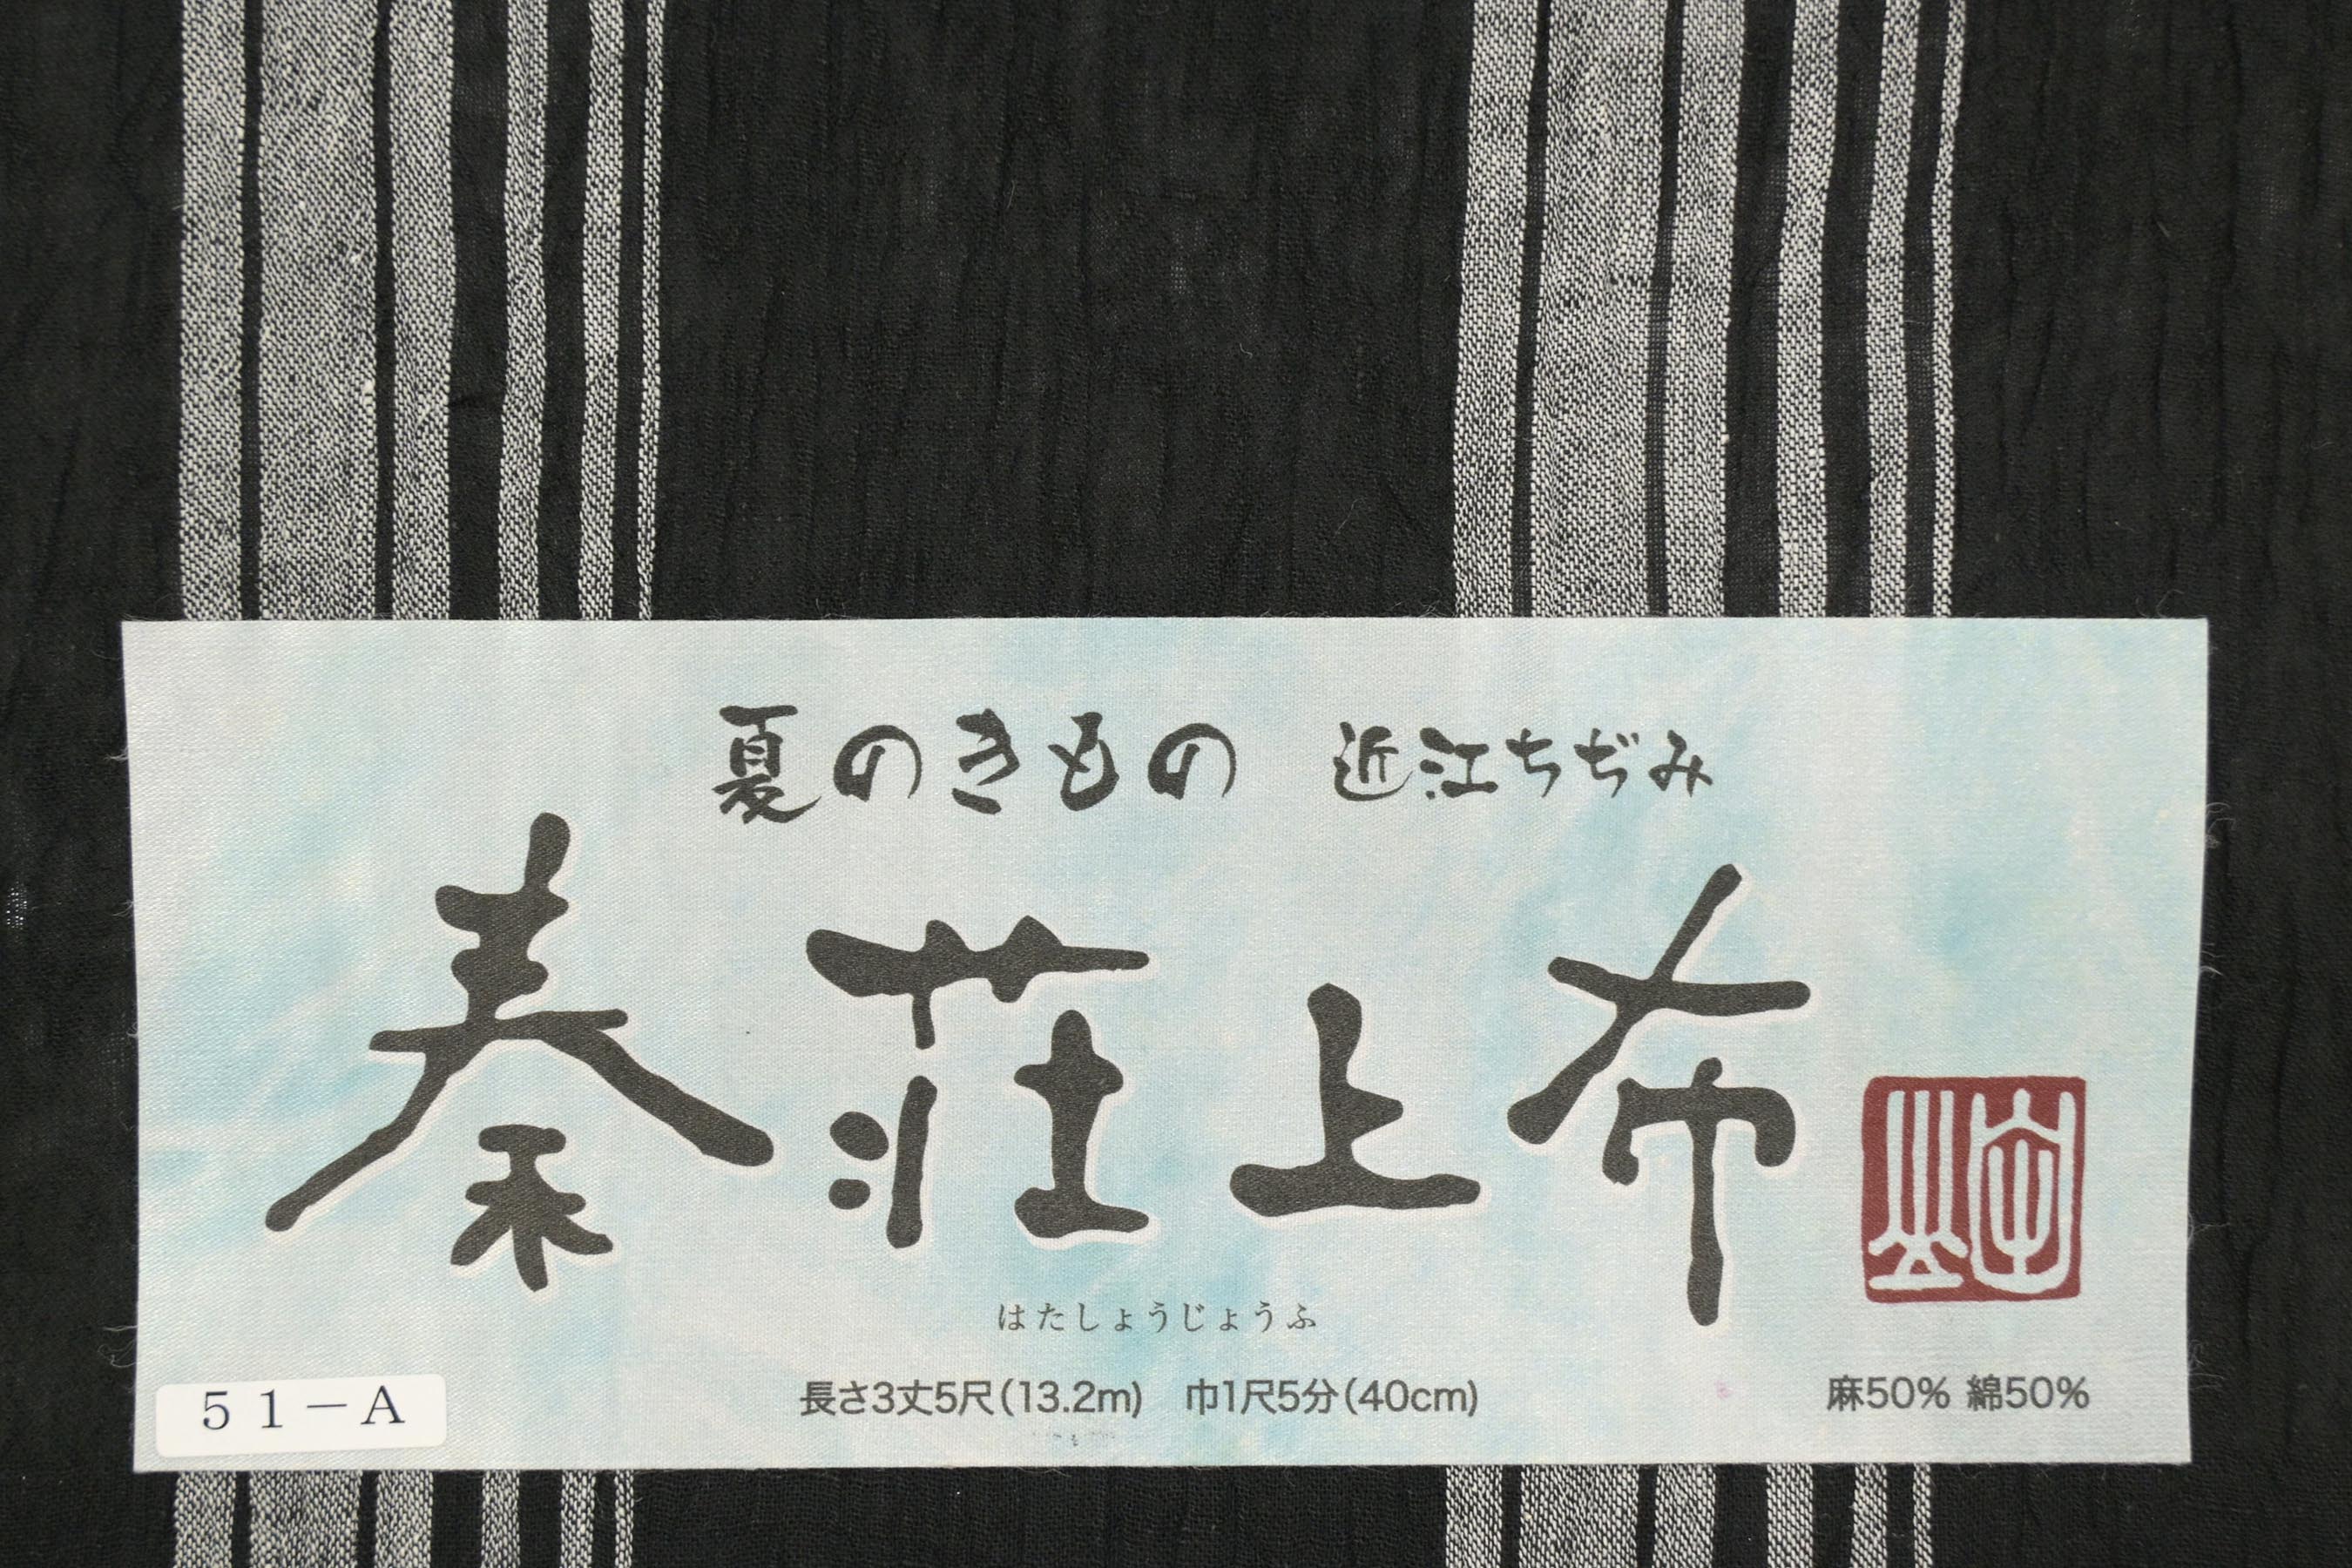 夏のきもの 近江ちぢみ
秦荘上布
はたしょうじょうふ
長さ3丈5尺(13.2m) 巾1尺5分(40cm)
麻50% 綿50%
51-A